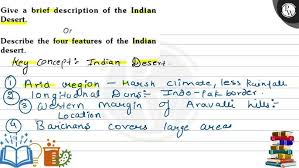 Give a brief description of the Indian
Desert.
Or
Describe the four features of the Indian
desert.
Key concept:- Indian Desert.
① Arid region - Harsh climate, less Rainfall
② longitudnal Duns:- Indo-Pak border.
③ Western margin of Aravali hills:-
Location
④ Barchans covers large areas